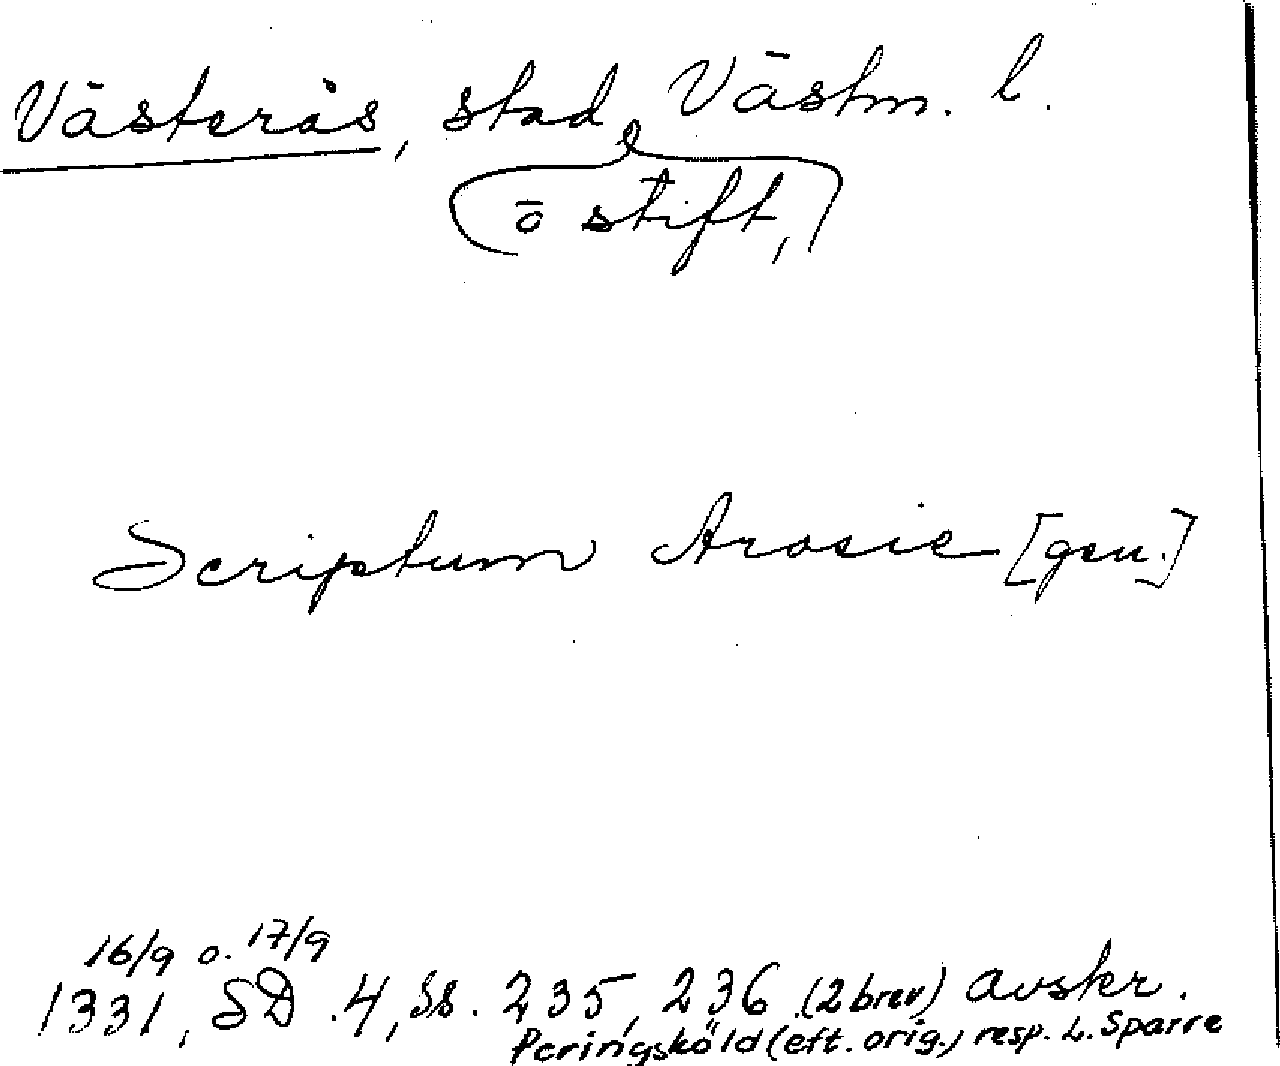 Västerås, stad, Västm. l.
o stift,
Scriptum Arosie [gen.]
16/9 o. 17/9
1331, SD 4, ss. 235, 236 (2 brev) avskr.
Peringsköld (eft. orig.) resp. L. Sparre